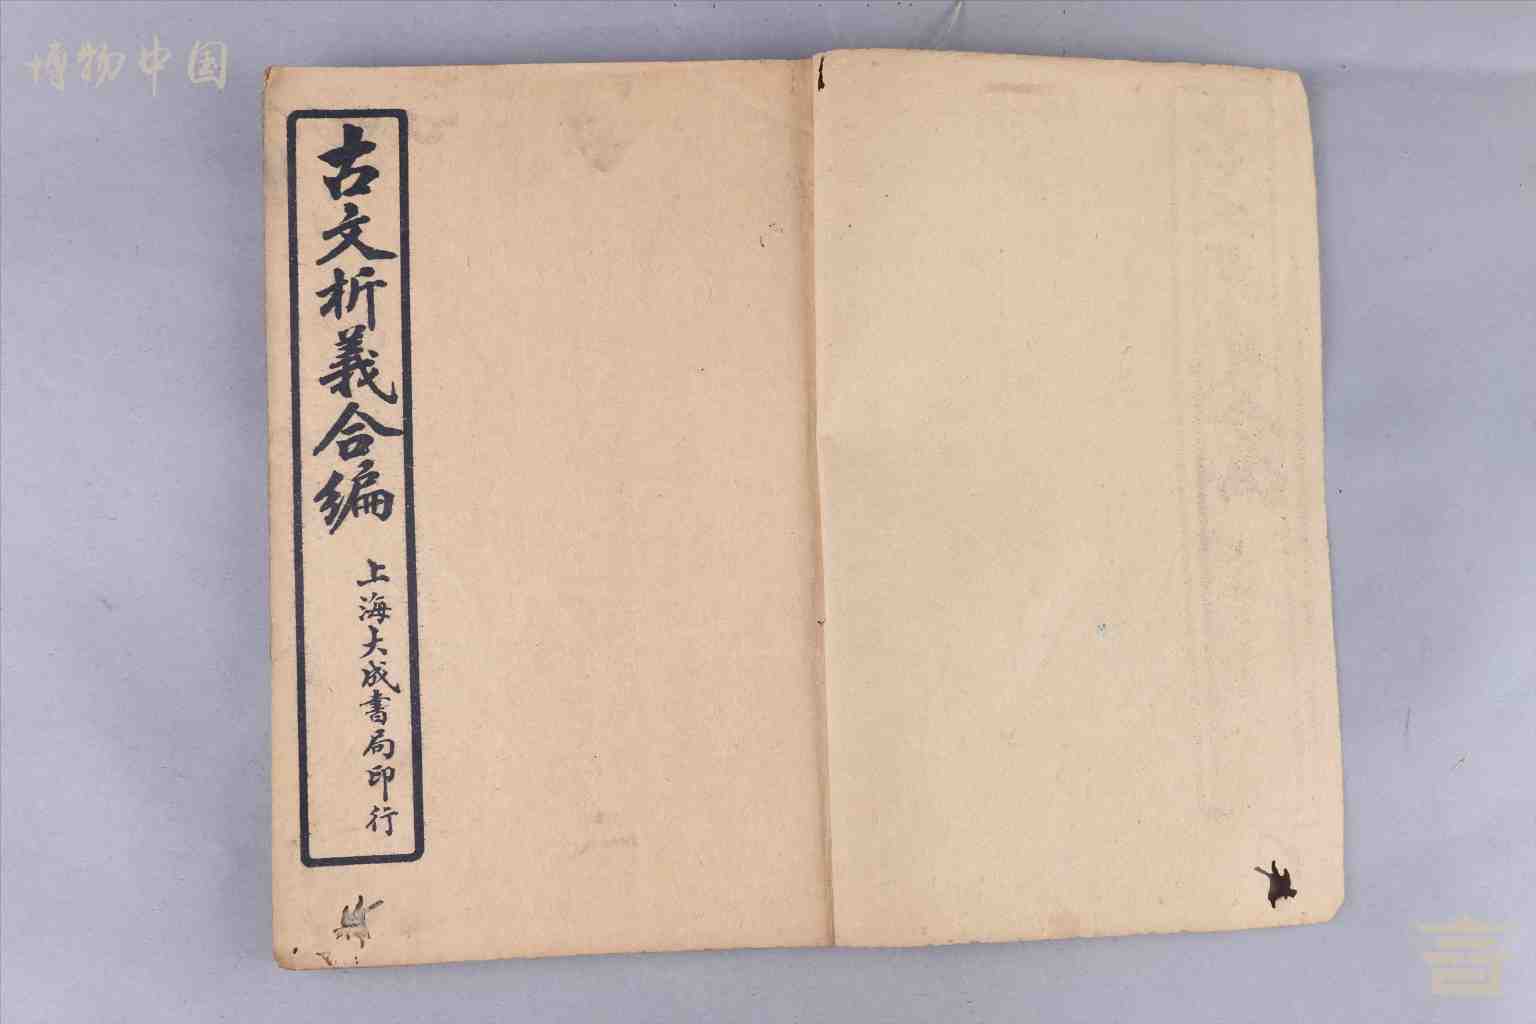 博物中国
古文析義合編
上海大成書局印行